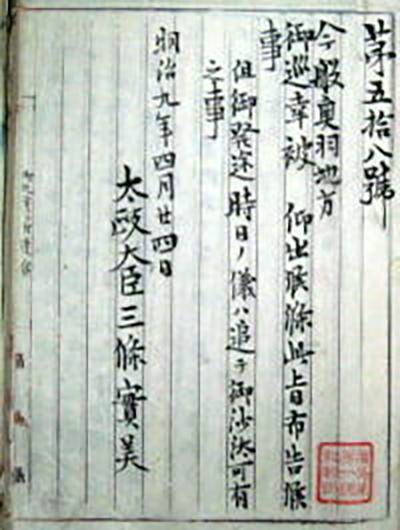 第五拾八號
今般奥羽地方
御巡幸被 仰出候條此旨布告候
事
但御発途時日ノ儀ハ追テ御沙汰可有
之事
明治九年四月廿四日
太政大臣三條實美